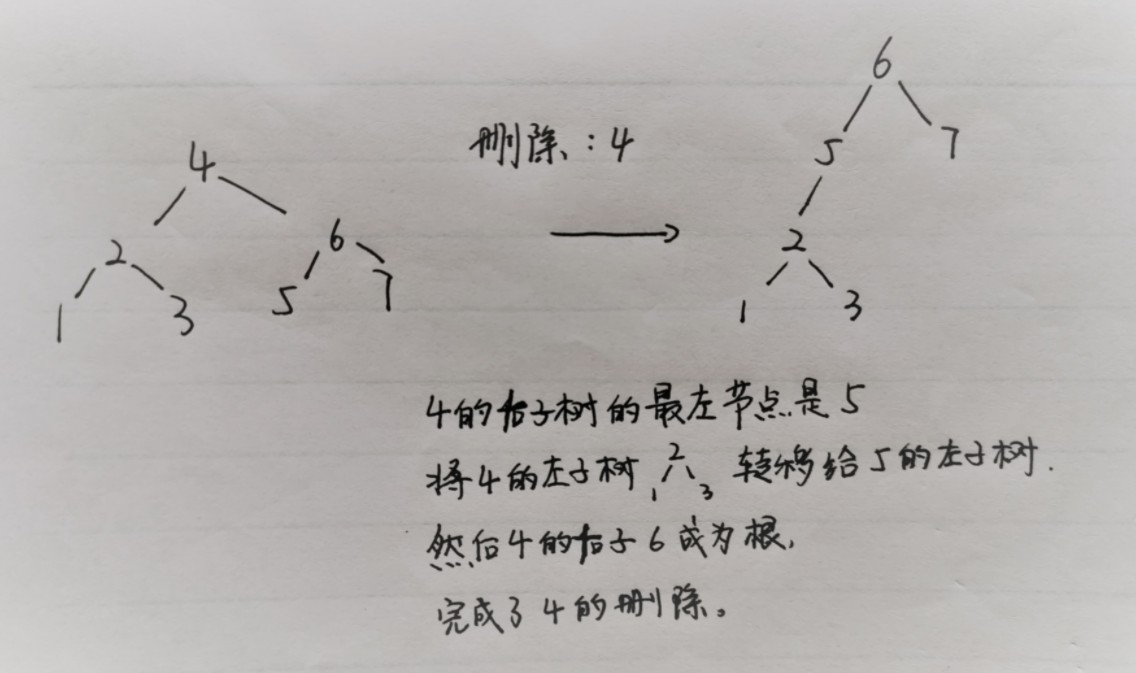 删除:4
4
2
6
1
3
5
7
6
5
7
2
1
3
4的右子树的最左节点是5
将4的左子树 2 1 3 转移给5的左子树.
然后4的右子6成为根,
完成了4的删除。